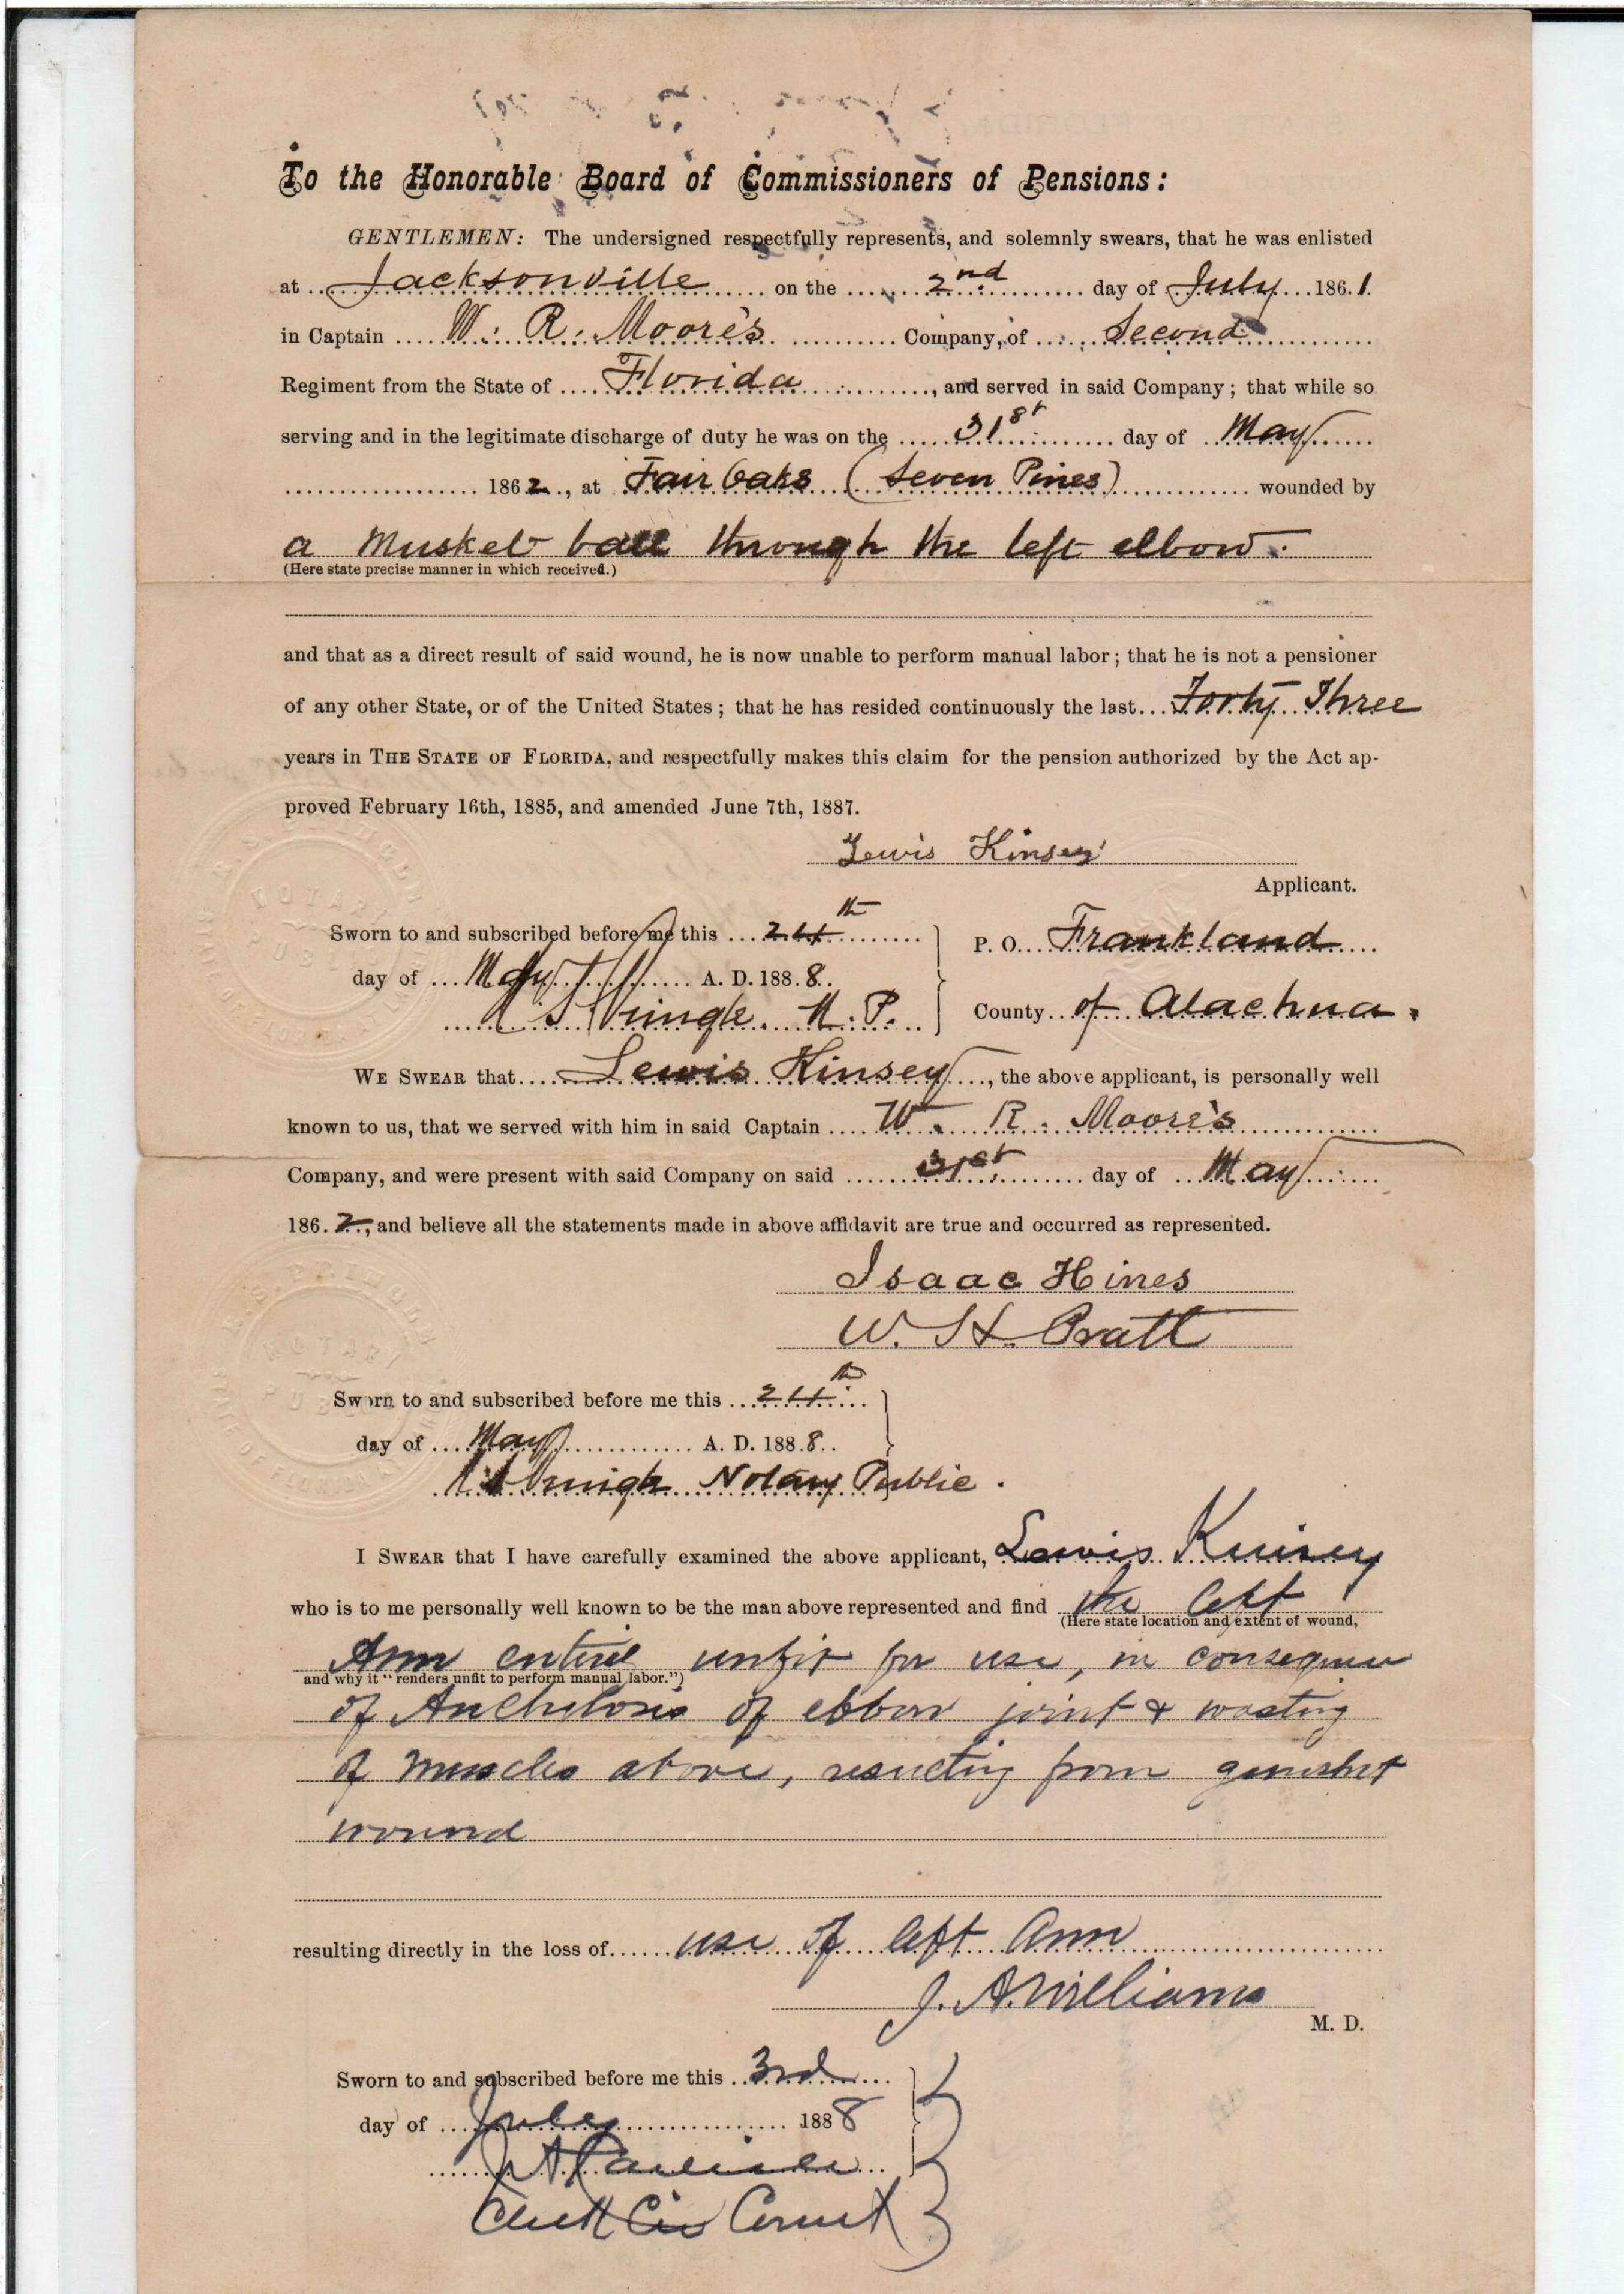 To the Honorable Board of Commissioners of Pensions:
GENTLEMEN: The undersigned respectfully represents, and solemnly swears, that he was enlisted
at Jacksonville on the 2nd day of July 1861
in Captain W. R. Moore's Company, of Second
Regiment from the State of Florida, and served in said Company; that while so
serving and in the legitimate discharge of duty he was on the 31st day of May
1862, at Fair Oaks (Seven Pines) wounded by
a Musket ball through the left elbow.
(Here state precise manner in which received.)
and that as a direct result of said wound, he is now unable to perform manual labor; that he is not a pensioner
of any other State, or of the United States; that he has resided continuously the last Forty Three
years in THE STATE OF FLORIDA, and respectfully makes this claim for the pension authorized by the Act ap-
proved February 16th, 1885, and amended June 7th, 1887.
Lewis Kinsey
Applicant.
Sworn to and subscribed before me this 24th
day of May A. D. 1888.
N. P.
P. O. Frankland
County of Alachua.
WE SWEAR that Lewis Kinsey, the above applicant, is personally well
known to us, that we served with him in said Captain W. R. Moore's
Company, and were present with said Company on said 31st day of May
1862, and believe all the statements made in above affidavit are true and occurred as represented.
Isaac Hines
W. H. Pratt
NOTARY
PUBLIC
Sworn to and subscribed before me this 24th
day of May A. D. 1888.
Notary Public.
I SWEAR that I have carefully examined the above applicant, Lewis Kinsey
who is to me personally well known to be the man above represented and find the left
(Here state location and extent of wound,
Arm entire unfit for use, in consequence
and why it "renders unfit to perform manual labor.")
of Anchylosis of elbow joint & wasting
of muscles above, resulting from gunshot
wound
resulting directly in the loss of use of left Arm
J. A. Williams
M. D.
Sworn to and subscribed before me this 3rd
day of July 1888
Clerk Cir Court